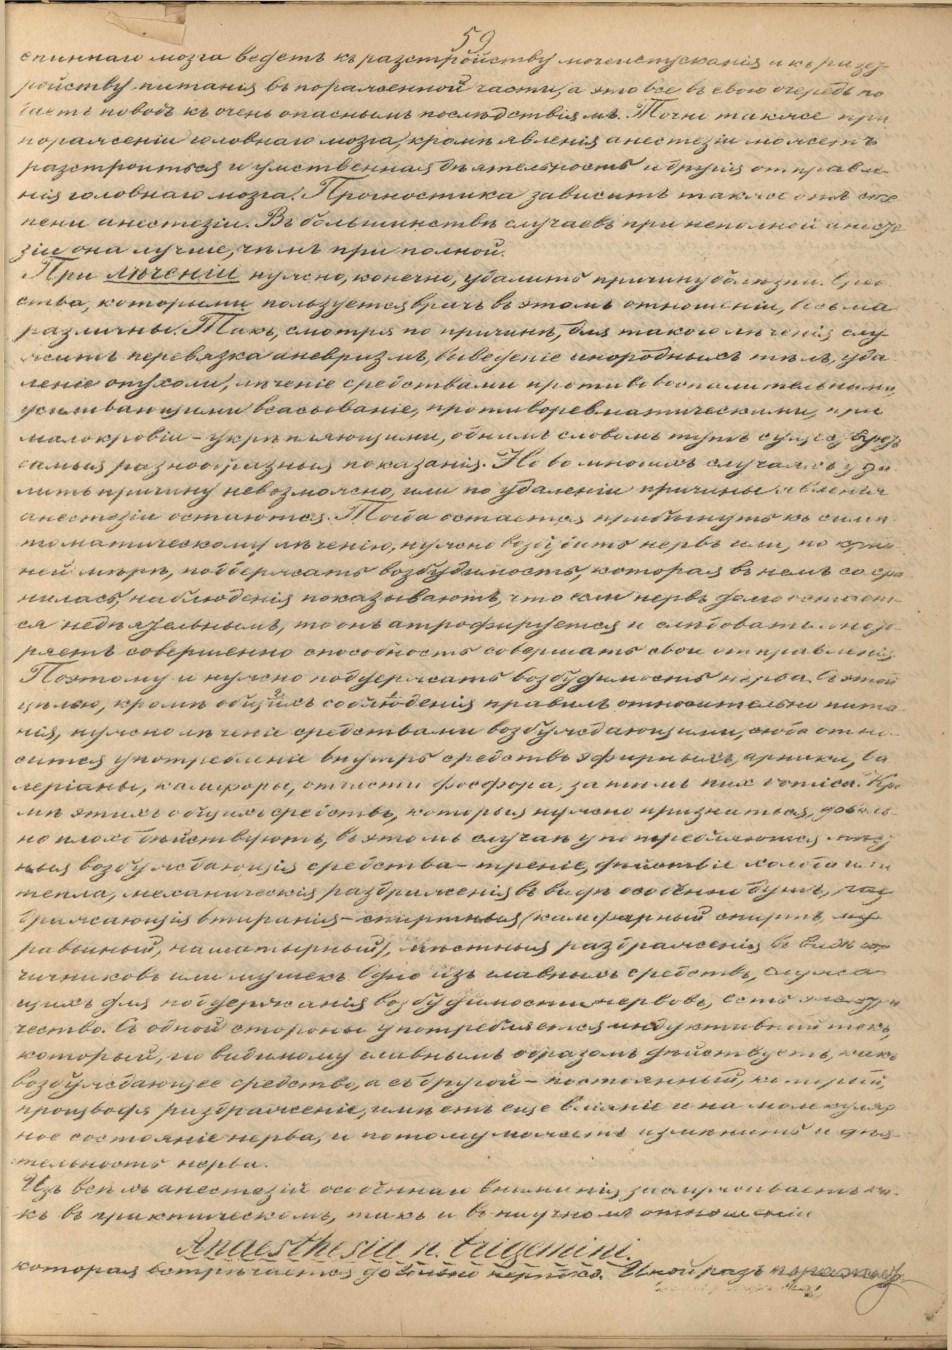 59
спиннаго мозга ведетъ къ разстройству мочеиспусканія и къ разст-
ройству питанія въ пораженной части, а это все въ свою очередь по
даетъ поводъ къ очень опаснымъ послѣдствіямъ. Точно также при
пораженіи головнаго мозга, кромѣ явленія анестезіи можетъ
разстроиться и умственная дѣятельность и другія отправле-
нія головнаго мозга. Прогностика зависитъ также отъ сте
пени анестезіи. Въ большинствѣ случаевъ при неполной анесте
зіи она лучше, чѣмъ при полной.
При лѣченіи нужно, конечно, удалить причину болѣзни. Сред
ства, которыми пользуется врачъ въ этомъ отношеніи, весьма
различны. Такъ, смотря по причинѣ, для такого лѣченія слу
житъ перевязка аневризмъ, выведеніе инородныхъ тѣлъ, уда
леніе опухоли, лѣченіе средствами противовоспалительными,
усиливающими всасываніе, противоревматическими, при
малокровіи – укрѣпляющими, однимъ словомъ тутъ существуютъ
самыя разнообразныя показанія. Но во многихъ случаяхъ уда
лить причину невозможно, или по удаленіи причины явленія
анестезіи остаются. Тогда остается прибѣгнуть къ симп
томатическому лѣченію, нужно возбудить нервъ или, по край
ней мѣрѣ, поддержать возбудимость, которая въ немъ сохра
нилась, наблюденія показываютъ, что если нервъ долго остает-
ся недѣятельнымъ, то онъ атрофируется и слѣдовательно те
ряетъ совершенно способность совершать свои отправленія.
Поэтому и нужно поддержать возбудимость нерва. Съ этой
цѣлью, кромѣ общихъ соблюденія правилъ относительно пита
нія, нужно лѣченіе средствами возбуждающими, сюда отно
сится употребленіе внутрь средствъ эфирныхъ, арники, ва
леріаны, камфоры, отчасти фосфора, затѣмъ nux vomica. Кро
мѣ этихъ общихъ средствъ, которыя нужно признаться, доволь
но плохо дѣйствуютъ, въ этомъ случаѣ употребляются мѣст
ныя возбуждающія средства – треніе, дѣйствіе холода или
тепла, механическія раздраженія въ видѣ особенно душъ, раз
дражающія втиранія – спиртныя (камфарный спиртъ, му
равьиный, нашатырный), мѣстныя раздраженія въ видѣ гор
чичниковъ или мушекъ. Одно изъ главныхъ средствъ, служа
щихъ для поддержанія возбудимости нервовъ, есть электри
чество. Съ одной стороны употребляется индуктивный токъ,
который, по видимому главнымъ образомъ дѣйствуетъ, какъ
возбуждающее средство, а съ другой – постоянный, который,
производя раздраженіе, имѣетъ еще вліяніе и на молекуляр
ное состояніе нерва, и потому можетъ измѣнить и дѣя-
тельность нерва.
Изъ всѣхъ анестезій особеннаго вниманія заслуживаетъ ка-
къ въ практическомъ, такъ и въ научномъ отношеніи
Anaesthesia n. trigemini.
которая встрѣчается довольно нерѣдко. Иной разъ